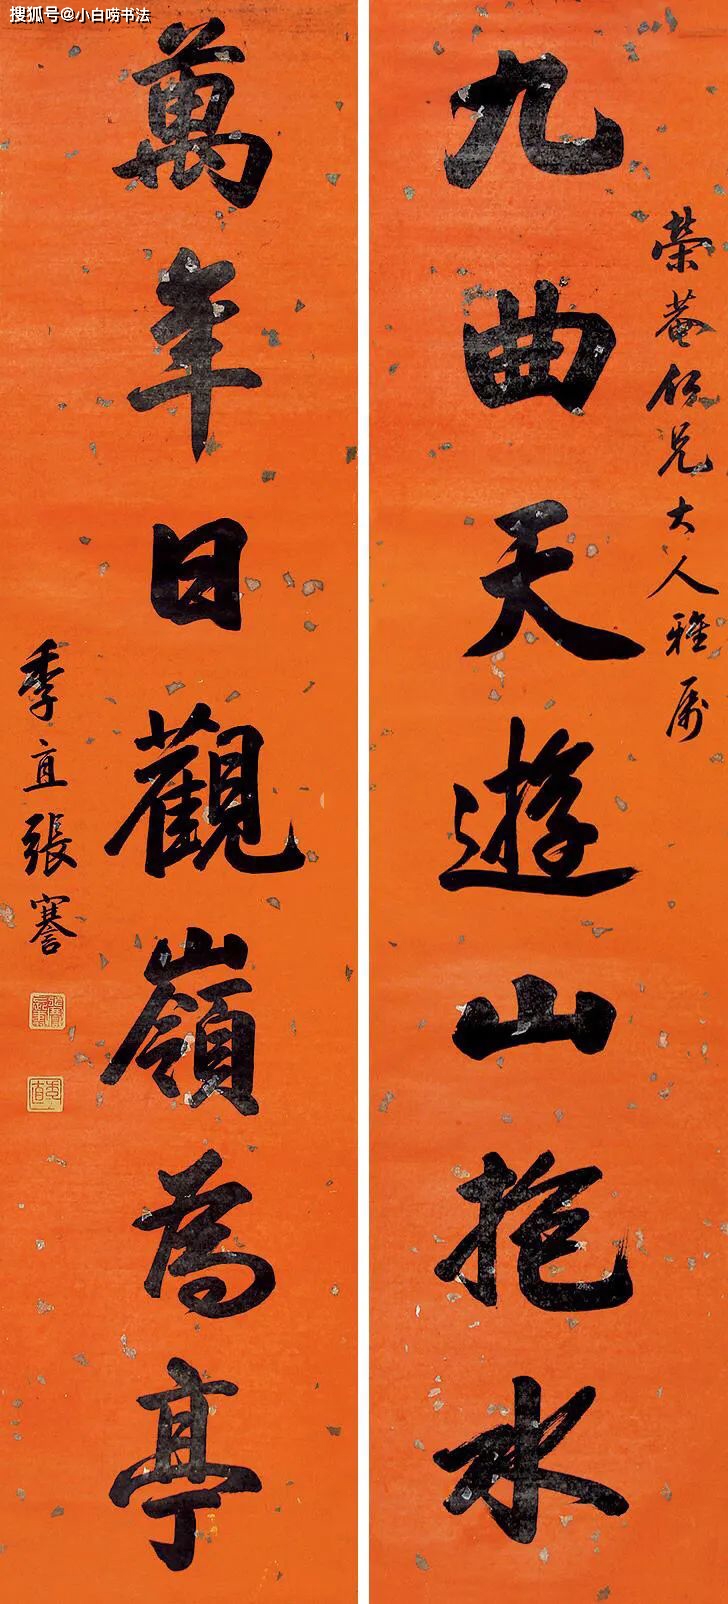 搜狐号@小白唠书法
九曲天遊山抱水
榮菴仁兄大人雅属
萬年日觀嶺為亭
季直張謇